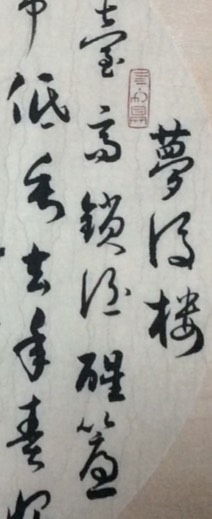 夢后樓
臺高鎖酒醒簾
帀低垂去年春恨